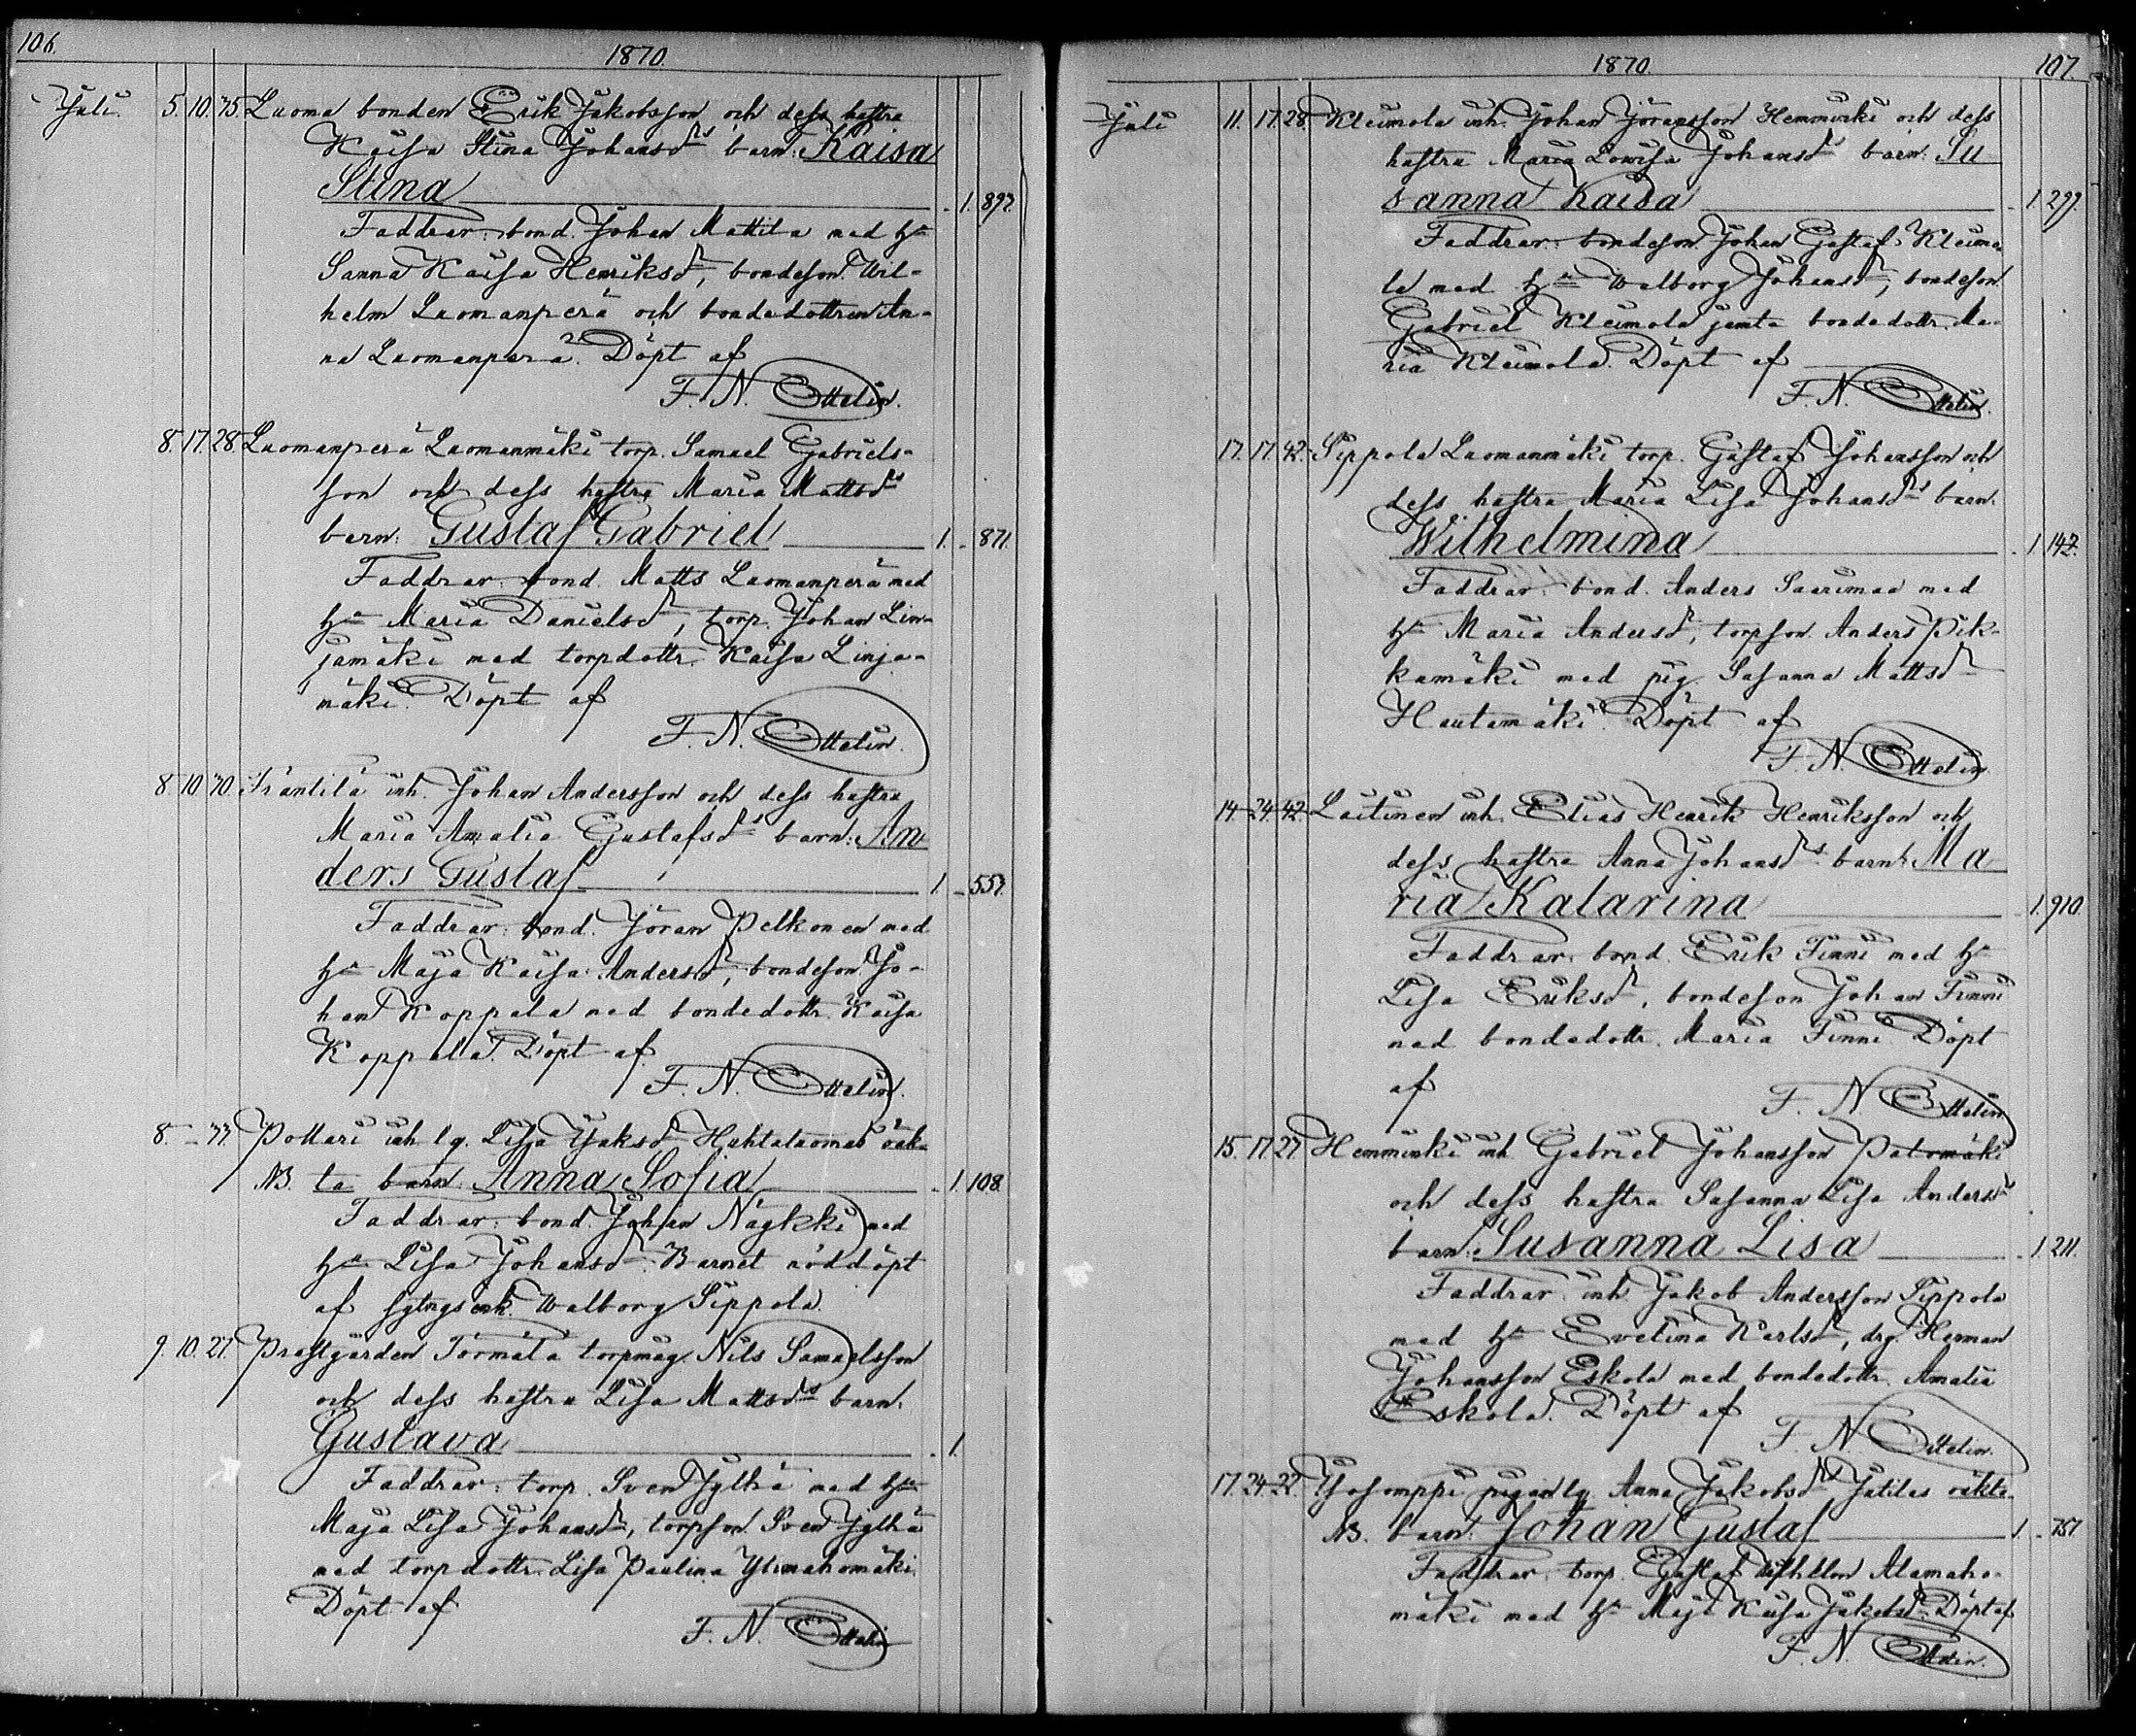 106.
1870.
Juli. 5. 10. 35. Luoma bonden Erik Jakobsson och dess hustru
Kaisa Stina Johansdrs barn: Kaisa
Stina 1. 897.
Faddrar: bond. Johan Mattila med hu
Sanna Kaisa Henriksdr, bondeson Wil-
helm Luomanperä och bondedottren An-
na Luomanperä. Döpt af
F. N. Ottelin.
8. 17. 28. Luomanperä Luomanmäki torp. Samuel Gabriels-
son och dess hustru Maria Mattsdrs
barn: Gustaf Gabriel 1. 871.
Faddrar: bond. Matts Luomanperä med
hu Maria Danielsdr, torp. Johan Lin-
jamäki med torpdottr. Kaisa Linja-
mäki. Döpt af
F. N. Ottelin.
8. 10. 30. Frantilä inh. Johan Andersson och dess hustru
Maria Amalia Gustafsdrs barn: An
ders Gustaf 1. 557.
Faddrar: bond. Jöran Pelkonen med
hu Maja Kaisa Andersdr, bondeson Jo-
han Koppala med bondedottr. Kaisa
Koppala. Döpt af
F. N. Ottelin.
8. - 33. Pottari inh. lq. Lisa Jaksdr Huhtaluomas oäk-
NB. ta barn Anna Sofia 1. 108.
Faddrar: bond. Johan Nägkki med
hu Lisa Johansdr. Barnet nöddöpt
af sytngsenk. Walborg Sippola.
9. 10. 27. Prestgården Törmälä torpmåg Nils Samuelsson
och dess hustru Lisa Mattsdrs barn.
Gustava 1.
Faddrar: torp. Sven Jylhä med hu
Maja Lisa Johansdr, torpson Sven Jylhä
med torpdottr. Lisa Paulina Ylimahomäki.
Döpt af
F. N. Ottelin
1870.
107.
Juli 11. 17. 28. Kleimola inh. Johan Jöransson Hemminki och dess
hustru Maria Lowisa Johansdrs barn: Su
sanna Kaisa 1. 299.
Faddrar: bondeson Johan Gustaf Kleimo
la med hu Walborg Johansdr, bondeson
Gabriel Kleimola jemte bondedottr. Ma-
ria Kleimola. Döpt af
F. N. Ottelin.
17. 17. 42. Sippola Luomanmäki torp. Gustaf Johansson och
dess hustru Maria Lisa Johansdrs barn.
Wilhelmina 1. 142.
Faddrar: bond. Anders Saarimaa med
hu Maria Andersdr, torpson Anders Pik-
kumäki med pig. Susanna Mattsdr
Hautamäki. Döpt af
F. N. Ottelin.
14. 24. 42. Laitinen inh. Elias Henrik Henriksson och
dess hustru Anna Johansdrs barn: Ma
ria Katarina 1. 910.
Faddrar: bond. Erik Finni med hu
Lisa Eriksdr, bondeson Johan Finni
med bondedottr. Maria Finni. Döpt
af
F. N. Ottelin
15. 17. 27. Hemminki inh. Gabriel Johansson Patomäki
och dess hustru Susanna Lisa Andersdr
barn: Susanna Lisa 1. 211.
Faddrar: inh. Jakob Andersson Sippola
med hu Evelina Karlsdr, drg. Herman
Johansson Eskola med bondedottr. Amalia
Eskola. Döpt af
F. N. Ottelin.
17. 24. 22. pigan lq. Anna Jakobsdrs oäkta
NB. barn: Johan Gustaf 1. 757.
Faddrar: torp. Gustaf Wilhelm Alamaho-
mäki med hu Maja Kaisa Jakobsdr. Döpt af
F. N. Ottelin.